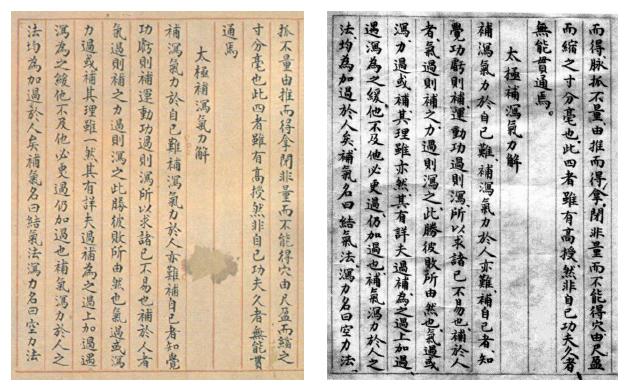 抓不量由推而得拿閉非量而不能得穴由尺盈而縮之
寸分毫也此四者雖有高授然非自己功夫久者無能貫
通焉
太極補瀉氣力解
補瀉氣力於自己難補瀉氣力於人亦難補自己者知覺
功虧則補運動功過則瀉所以求諸己不易也補於人者
氣過則補之力過則瀉之此勝彼敗所由然也氣過或瀉
力過或補其理雖一然其有詳夫過補為之過上加過遇
瀉為之緩他不及他必更過仍加過也補氣瀉力於人之
法均為加過於人矣補氣名曰結氣法瀉力名曰空力法
而得脉抓不量由推而得拿閉非量而不能得穴由尺盈
而縮之寸分毫也此四者雖有高授然非自己功夫久者
無能貫通焉。
太極補瀉氣力解
補瀉氣力於自己難補瀉氣力於人亦難補自己者知
覺功虧則補運動功過則瀉所以求諸己不易也補於人
者氣過則補之力過則瀉之此勝彼敗所由然也氣過或
瀉力過或補其理雖亦然其有詳夫過補為之過上加過
遇瀉為之緩他不及他必更過仍加過也補氣瀉力於人之
法均為加過於人矣補氣名曰結氣法瀉力名曰空力法